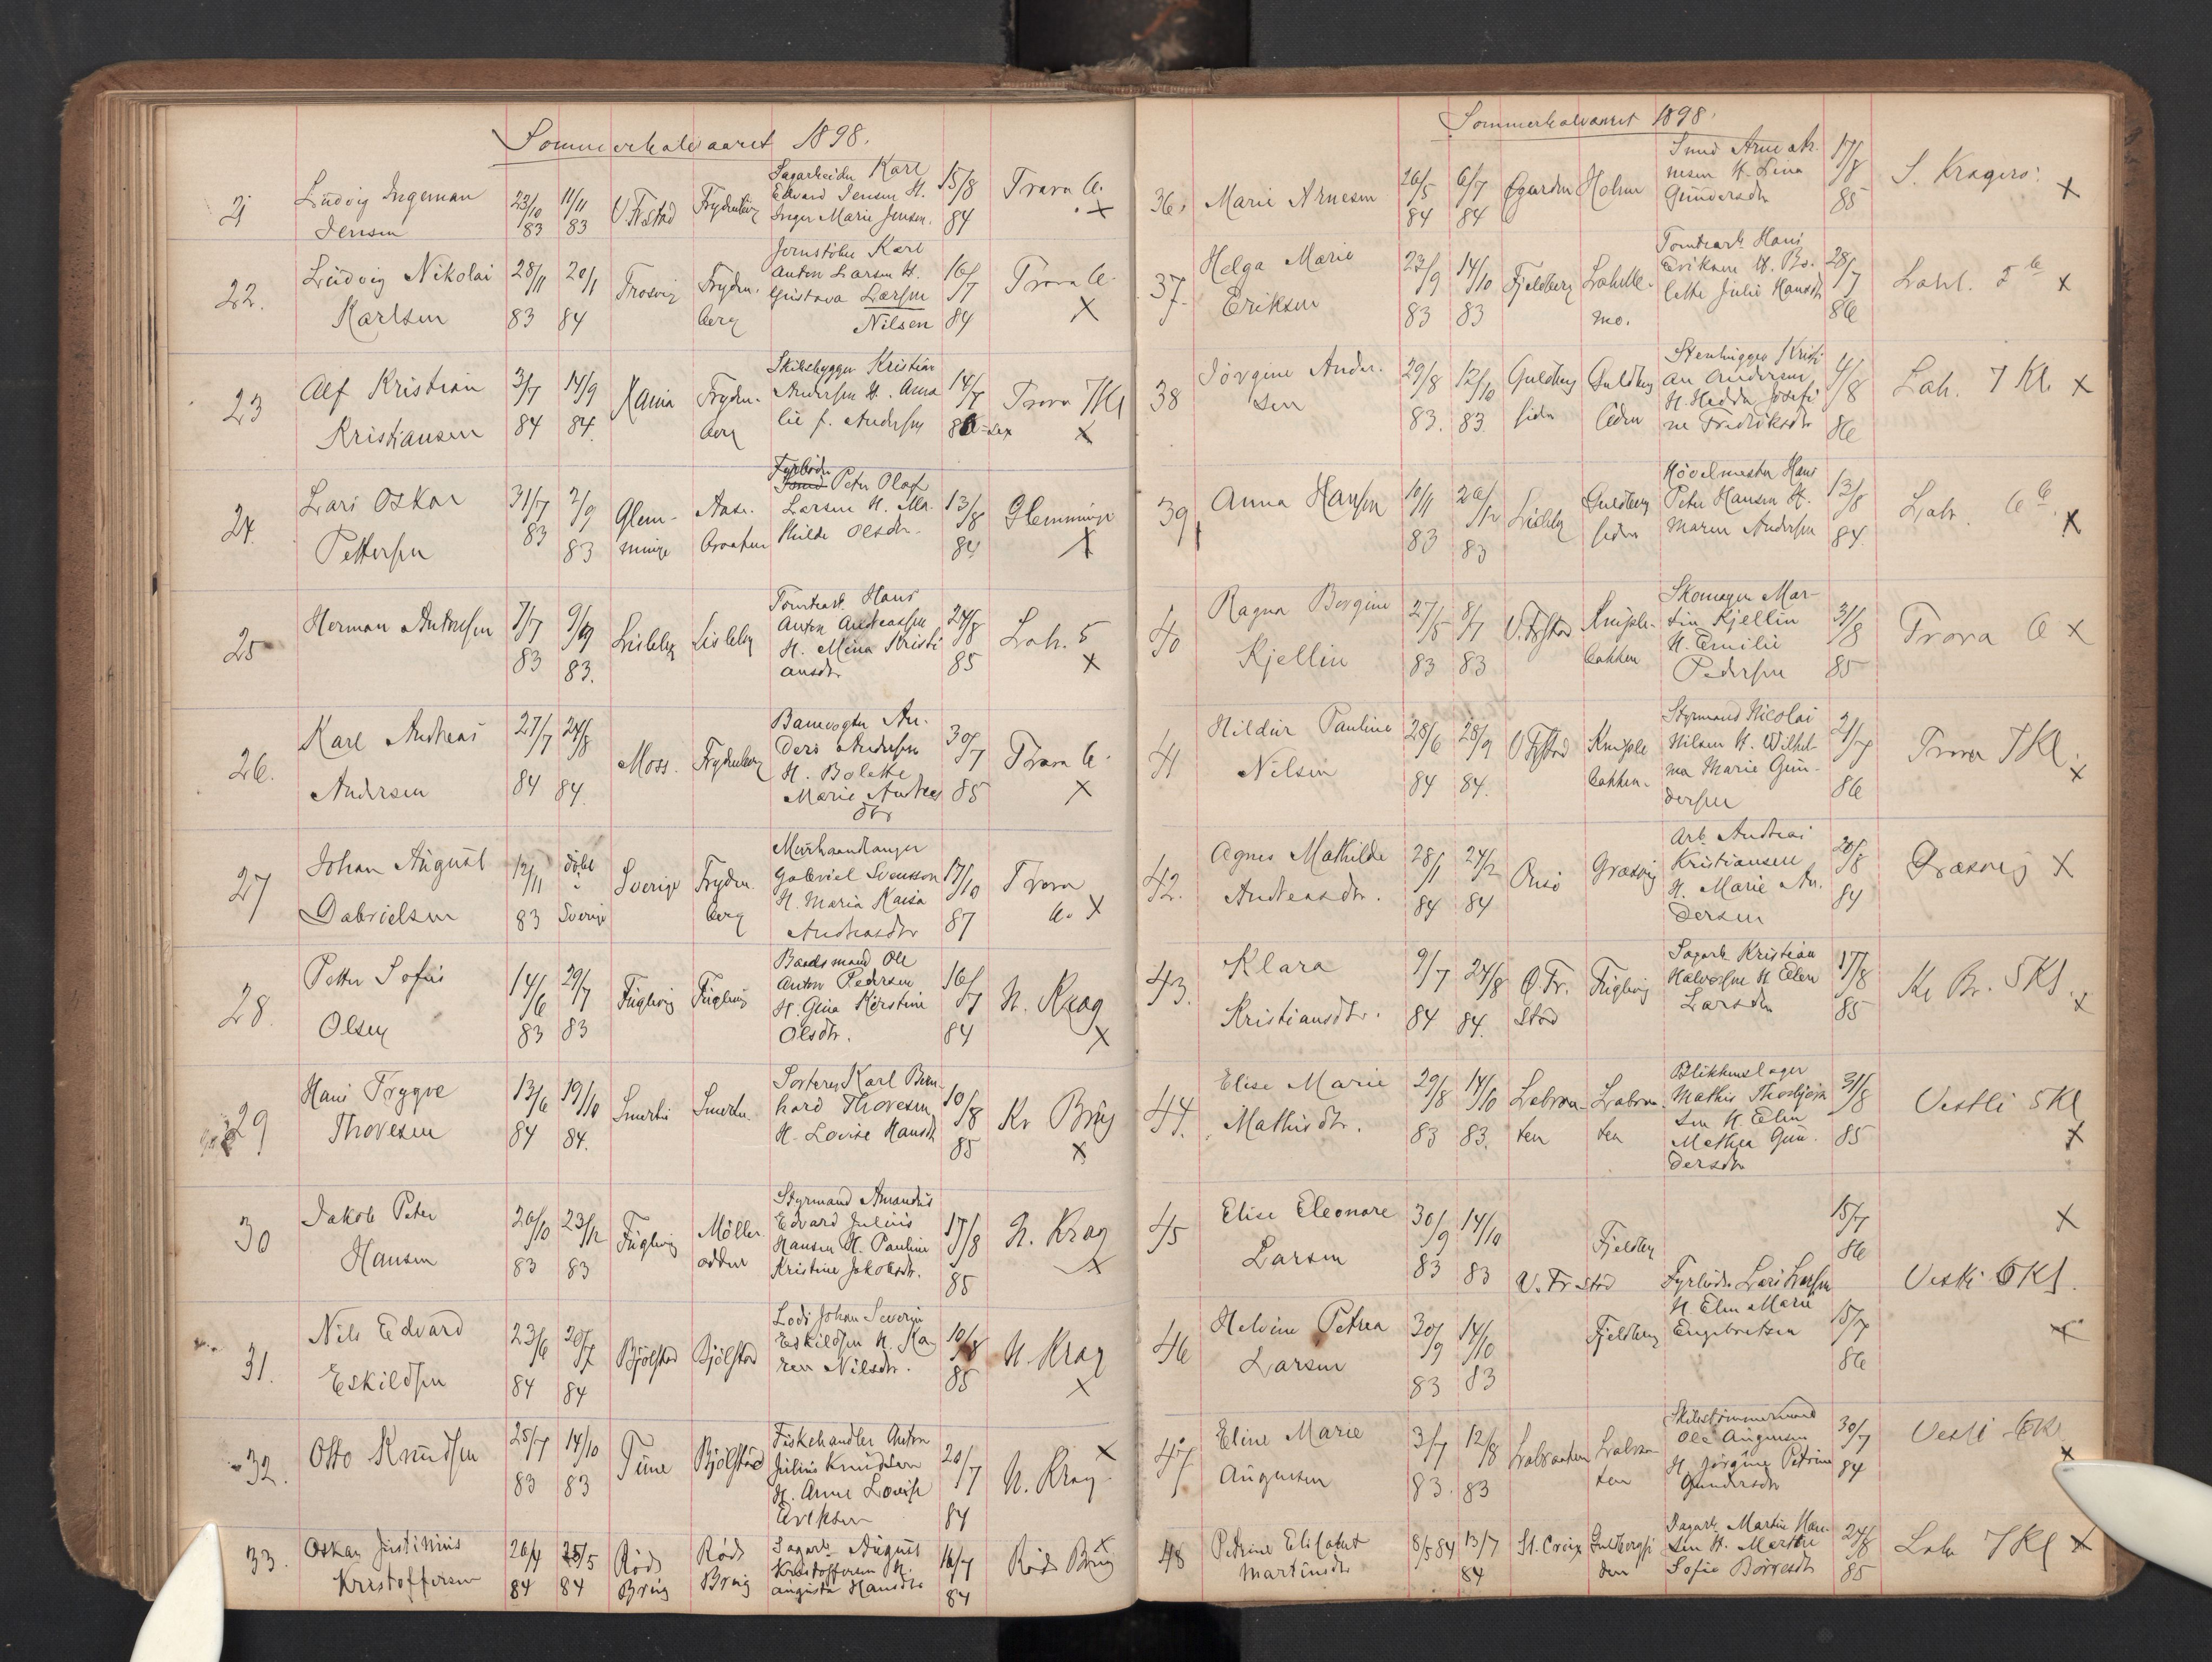 Sommerhalvaaret 1898.
21
Ludvig Ingeman
Jensen
23/10 83
11/11 83
V. Fr.stad
Frydenberg
Sagarbeider Karl
Edvard Jensen H.
Inger Marie Jensen.
15/8 84
Trara 6.
x
22.
Ludvig Nikolai
Karlsen
28/11 83
20/1 84
Trosvig
Fryden-
berg
Jernstöber Karl
Anton Larsen H.
Gustava Larsen
Nilsen
16/7 84
Trara 6
x
23
Alf Kristian
Kristiansen
3/7 84
14/9 84.
Xania
Fryden-
berg
Skibsbygger Kristian
Andersen H. Ama
lie f. Andersen
14/7
Trara 7 Kl
x
24.
Lars Oskar
Pettersen
31/7 83
2/9 83
Glem-
minge
Aase-
braaten
Fyrböder
Peter Olaf
Larsen H. Ma-
thilde Olsdtr.
13/8 84
Glemminge
x
25
Herman Antonsen
7/7 83
9/9 83.
Lisleby
Lisleby
Tomtearb. Hans
Anton Andreassen
H. Mina Kristi
ansdtr
24/8 85
Lah. 5
x
26.
Karl Andreas
Andersen
27/7 84
24/8 84.
Moss.
Frydenberg
Banevogter An-
ders Andersen
H. Bolette
Marie Andreas
dtr
30/7 85
Trara 6.
x
27
Johan August
Gabrielsen
12/11 83
döbt
i
Sverige
Sverige
Fryden
berg
Murhaandlanger
Gabriel Svensson
H. Maria Kaisa
Andreasdtr
17/10 87
Trara
6. x
28.
Petter Sofus
Olsen
14/6 83
29/7 83
Fuglevig
Fuglevig
Baadsmand Ole
Anton Pedersen
H. Gina Kirstine
Olsdtr.
16/7 84
N. Krag
x
29
Hans Trygve
Thoresen
13/6 84
19/10 84.
Smertu
Smertu.
Sorterer Karl Bern-
hard Thoresen
H. Lovise Hansdtr
10/8 85
Kr Brug
x
30
Jakob Peter
Hansen
26/10 83
23/12 83
Fuglevig
Möller
odden
Styrmand Amandus
Edvard Julius
Hansen H. Pauline
Kristine Jakobsdtr.
17/8 85
N. Krag
x
31.
Nils Edvard
Eskildsen
23/6 84
20/7 84
Bjölstad
Bjölstad
Lods Johan Severin
Eskildsen H. Ka
ren Nilsdtr.
10/8 85
N. Krag
x
32.
Otto Knudsen
25/7 83
14/10 83
Tune
Bjölstad
Fiskehandler Anton
Julius Knudsen
H. Anne Lovise
Eriksen
20/7 84
N. Krag
x
33.
Oskar Justinius
Kristoffersen
26/4 84
25/5 84
Röds
Brug
Röds
Brug
Sagarb. August
Kristoffersen H.
Augusta Hansdtr
16/7 84
Röds Brug
x
Sommerhalvaaret 1898.
36.
Marie Arnesen
26/5 84
6/7 84
Ögarden
Holme
Smed Arne
nesen H. Lina
Gundersdtr
17/8 85
S. Kragerö
x
37.
Helga Marie
Eriksen
23/9 83
14/10 83
Fjeldberg
Lahelle-
mo.
Tomtearb. Hans
Eriksen H. Bo-
lette Julie Hansdtr
28/7 86
Lahl. 5 kl
x
38
Jörgine Ander-
sen
29/8 83.
12/10 83.
Guldberg
siden
Guldberg
siden
Stenhugger Kristi
an Andersen
H. Hedda Josefi
ne Fredriksdtr
4/8 86
Lah. 7 Kl x
39
Anna Hansen
10/11 83
26/12 83
Lisleby
Guldberg
siden
Hövelmester Hans
Peter Hansen H.
Maren Andersen
13/8 84.
Lah. 6 kl.
x
40
Ragna Borgine
Kjellin
27/5 83
8/7 83
V. Frstad
Kniple-
bakken
Skomager Mar-
tin Kjellin
H. Emilie
Pedersen
31/8 85
Trara 6 x
41
Hildur Pauline
Nilsen
28/6 84
28/9 84.
V Frstad
Kniple
bakken.
Styrmand Nicolai
Nilsen H. Wilhel-
ma Marie Gun-
dersen
21/7 86
Trara 7 Kl.
x
42.
Agnes Mathilde
Andreasdtr.
28/1 84
24/2 84
Onsö
Græsvig
Arb. Andreas
Kristiansen
H. Marie An-
dersen
20/8 84
Græsvig x
43.
Klara
Kristiansdtr.
9/7 84
24/8 84.
Ö. Fr.
stad
Fuglevig
Sagarb. Kristian
Halvorsen H. Elen
Larsdtr
17/8 85
Kr Br. 5 Kl.
x
44.
Elise Marie
Mathisdtr.
29/8 83
14/10 83.
Labraa-
ten
Labraa-
ten
Blikkenslager
Mathis Thorbjörn
sen H. Elen
Mathea Gun-
dersdtr
31/8 85
Vestli 5 Kl
x
45
Elise Eleonore
Larsen
30/9 83
14/10 83
V. Fr.stad
Fjeldberg
Fyrböder Lars Larsen
H. Elen Marie
Engebretsen
15/7 86
x
Vestli 6 Kl.
46
Helvine Petrea
Larsen
30/9 83
14/10 83
Fjeldberg
15/7 86
x
47
Eline Marie
Augusen
3/7 83.
12/8 83
Labraaten
Labraa-
ten
Skibstömmermand
Ole Augusen
H. Jörgine Petrine
Gundersdtr
30/7 84
Vestli 6 Kl
x
48
Petrine Elisabet
Martinsdtr
8/5 84
13/7 84
St. Croix
Guldbergsi
den
Sagarb. Martin Han-
sen H. Marthe
Sofie Börresdtr
24/8 85
Lah 7 Kl x